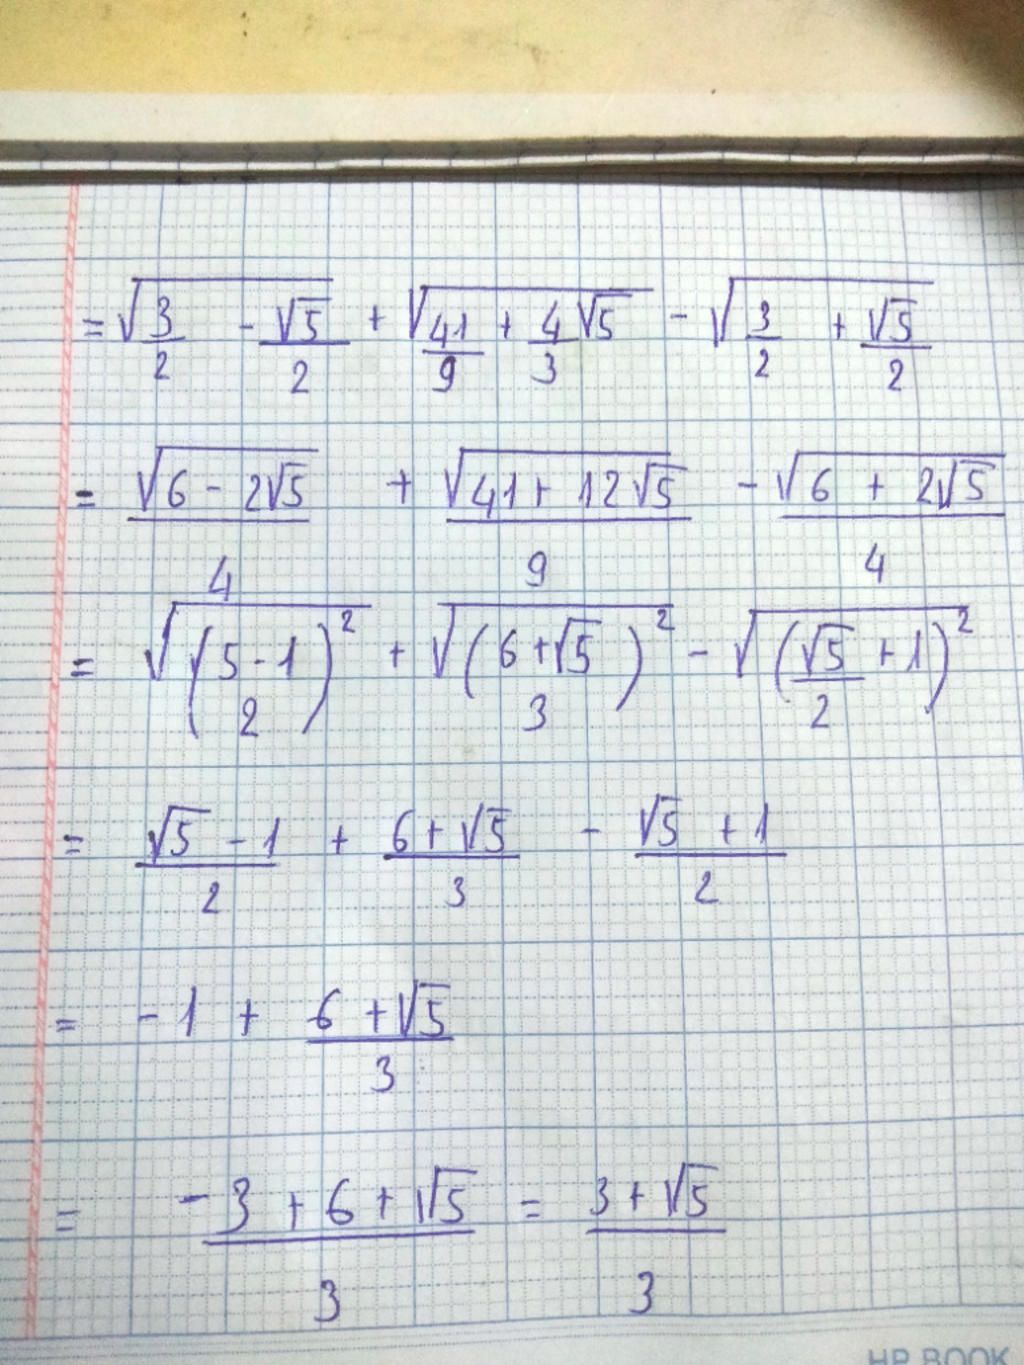 = √(3/2 - √5/2) + √(41/9 + 4/3 √5) - √(3/2 + √5/2)
= √(6 - 2√5)/4 + √(41 + 12√5)/9 - √(6 + 2√5)/4
= √((√5 - 1)/2)² + √((6 + √5)/3)² - √((√5 + 1)/2)²
= (√5 - 1)/2 + (6 + √5)/3 - (√5 + 1)/2
= -1 + (6 + √5)/3
= (-3 + 6 + √5)/3 = (3 + √5)/3
HR BOOK